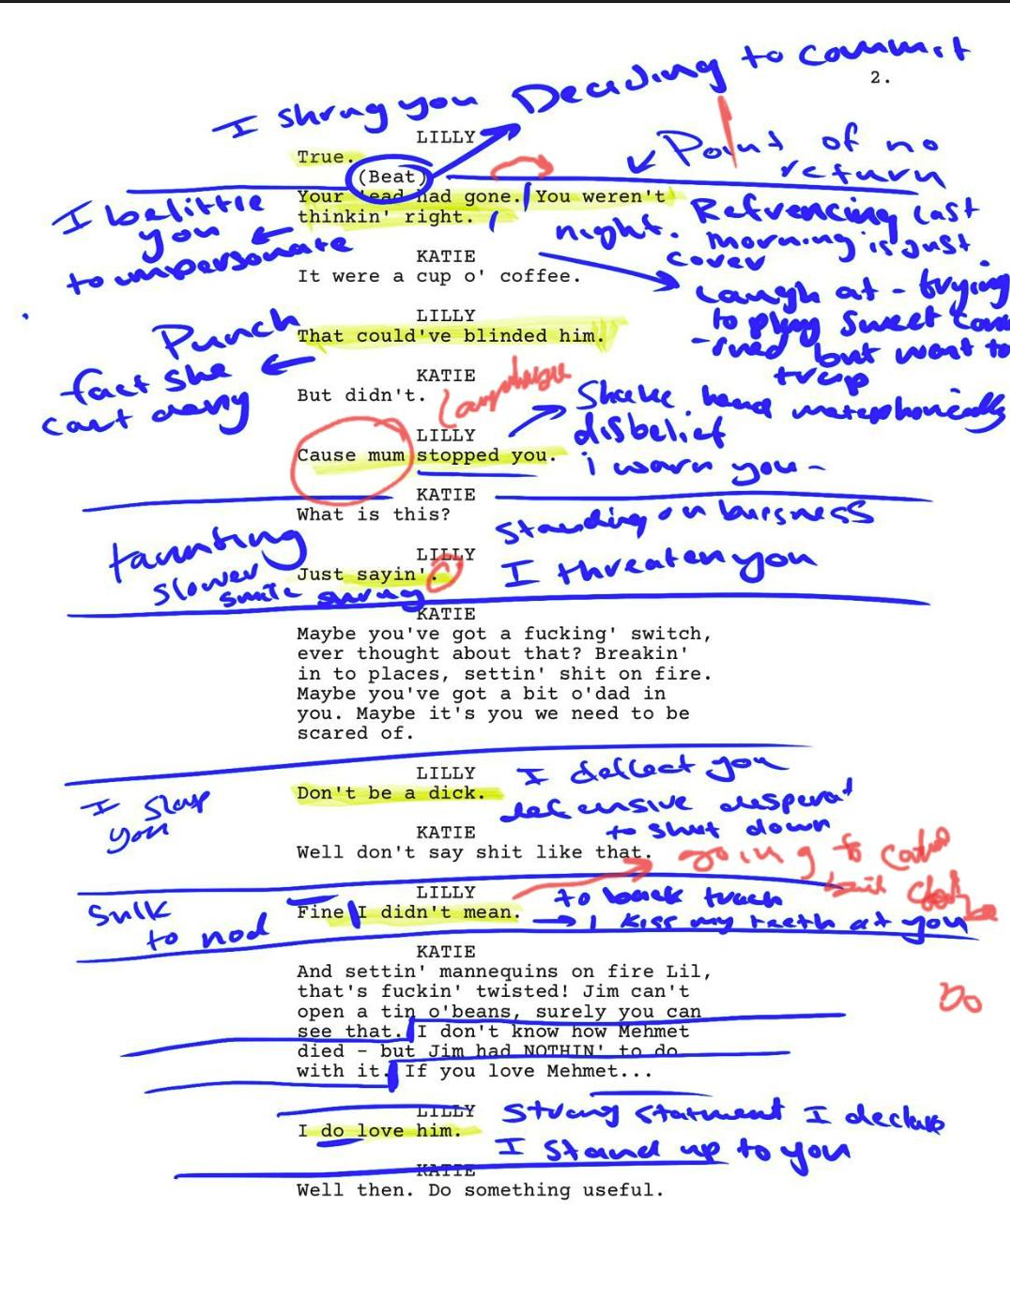 I shrug you Deciding to commit
2.
LILLY
True.
(Beat)
Point of no
return
Your 'ead had gone. You weren't
thinkin' right.
I belittle
you
to impersonate
night. Refrencing last
morning is just
cover
KATIE
It were a cup o' coffee.
laugh at - trying
to play sweet conce
-rned but want to
trap
LILLY
That could've blinded him.
Punch
fact she
cant deny
KATIE
But didn't.
LILLY
Cause mum stopped you.
Shake head metephorically
disbelief
i warn you -
KATIE
What is this?
Standing on buisness
I threaten you
LILLY
Just sayin'.
taunting
slower
smile shrug
KATIE
Maybe you've got a fucking' switch,
ever thought about that? Breakin'
in to places, settin' shit on fire.
Maybe you've got a bit o'dad in
you. Maybe it's you we need to be
scared of.
LILLY
Don't be a dick.
I deflect you
defensive desperat
to shut down
I slap
you
KATIE
Well don't say shit like that.
going to
LILLY
Fine I didn't mean.
to back track
I kiss my teeth at you
Sulk
to nod
KATIE
And settin' mannequins on fire Lil,
that's fuckin' twisted! Jim can't
open a tin o'beans, surely you can
see that. I don't know how Mehmet
died - but Jim had NOTHIN' to do
with it. If you love Mehmet...
LILLY
I do love him.
Strong statment I declare
I stand up to you
KATIE
Well then. Do something useful.